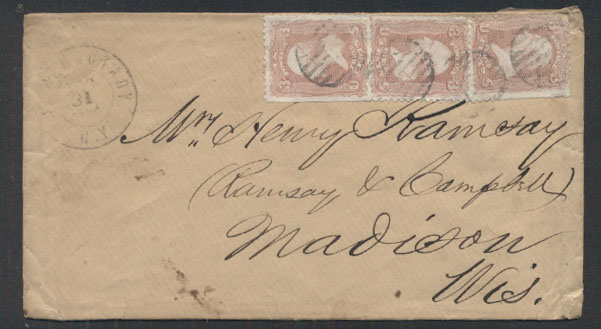 31
N.Y.
Mr. Henry Ramsay
(Ramsay & Campbell)
Madison
Wis.